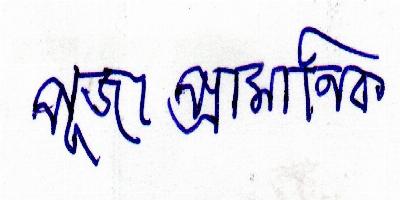 পূজা প্রামানিক